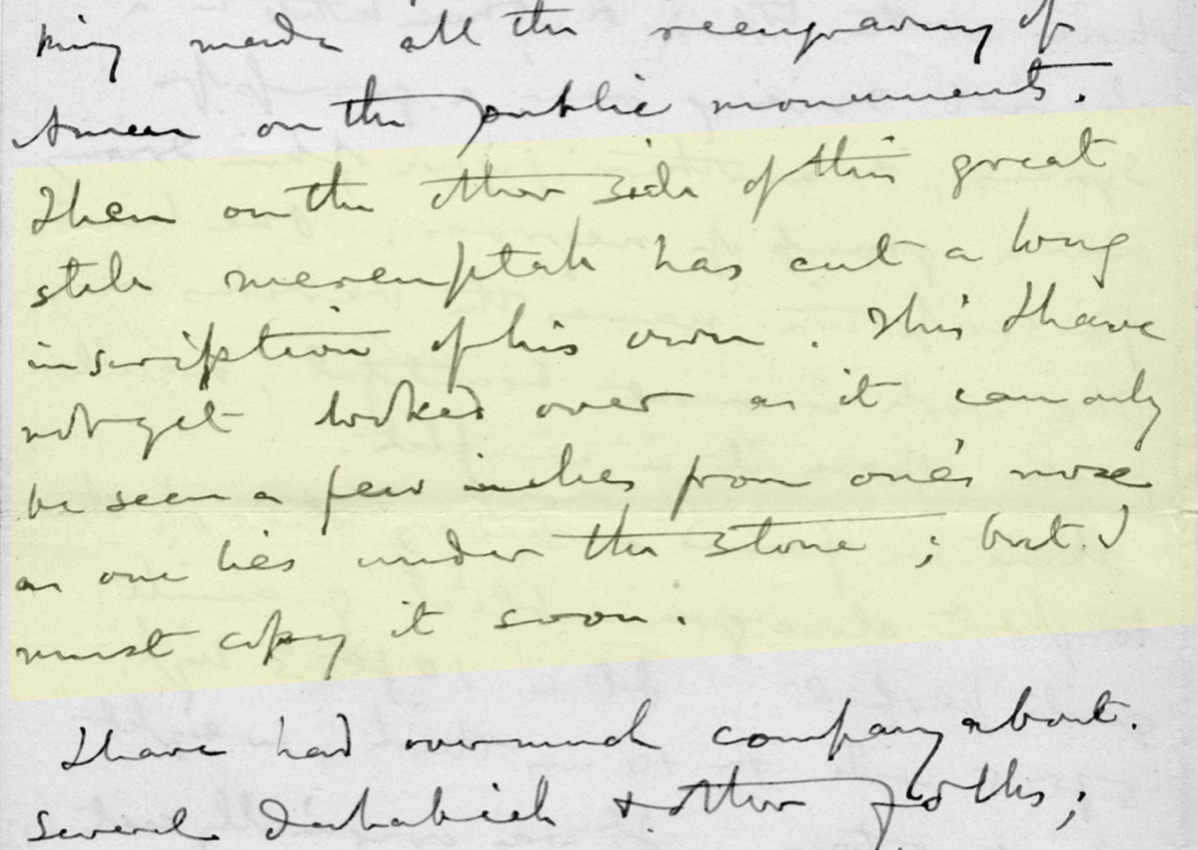 King made all the reengraving of
Amen on the public monuments.
Then on the other side of this great
stele Merenptah has cut a long
inscription of his own. This I have
not yet looked over as it can only
be seen a few inches from one's nose
as one lies under the stone; but I
must copy it soon.
I have had overmuch company about.
Several dahabieh & other folks;